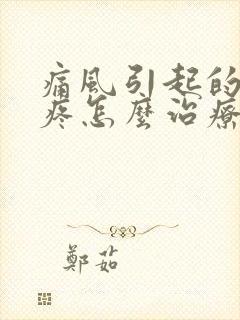 痛風引起的
疼怎麼治療
鄭茹